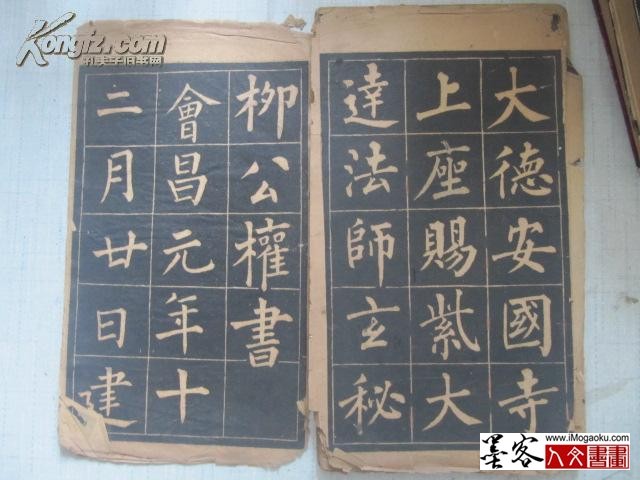 大德安國寺
上座賜紫大
達法師玄秘
柳公權書
會昌元年十
二月廿日建
Kongfz.com
孔夫子旧书网
墨客
人文書畫
www.iMogaoku.com